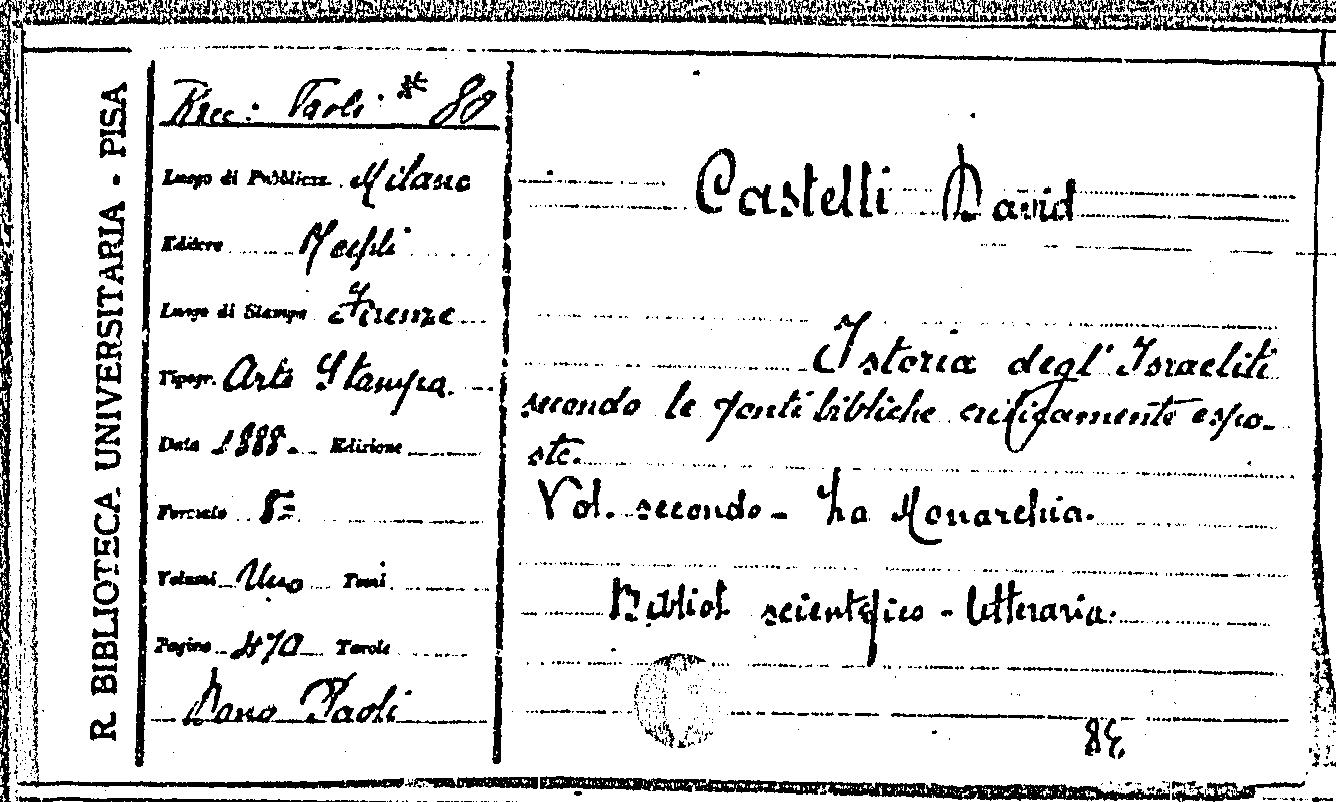 R. BIBLIOTECA UNIVERSITARIA - PISA
Racc: Paoli * 80
Luogo di Pubblicaz. Milano
Editore Hoepli
Luogo di Stampa Firenze
Tipogr. Arte Stampa.
Data 1888. Edizione
Formato 8°
Volumi Uno Tomi
Pagine 470 Tavole
Dono Paoli
Castelli David
Istoria degl' Israeliti
secondo le fonti bibliche criticamente espo-
ste.
Vol. secondo - La Monarchia.
Bibliot. scientifico - letteraria.